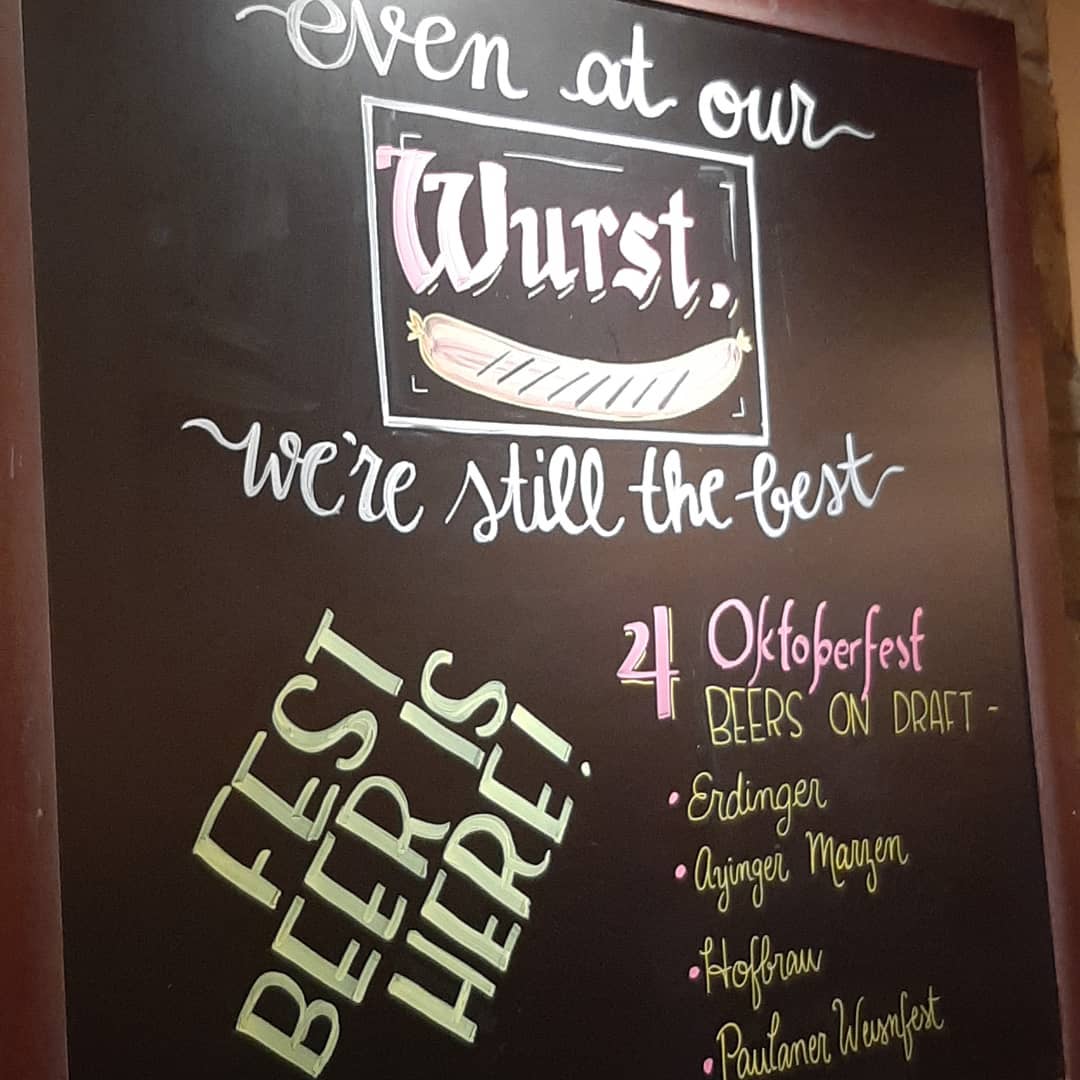 even at our
Wurst.
we're still the best
FEST
BEER IS
HERE!
4 Oktoberfest
BEERS ON DRAFT -
• Erdinger
• Ayinger Marzen
• Hofbrau
• Paulaner Weisnfest